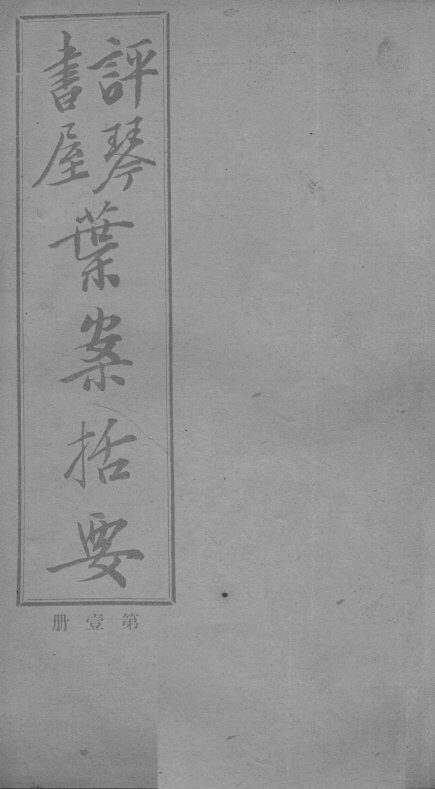 評琴
書屋
葉案括要
第壹册